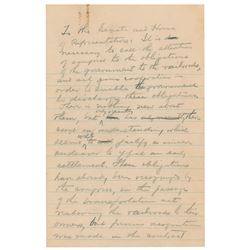 To the Senate and House
of Representatives: It is
necessary to call the attention
of congress to the obligations
of the government to the railroads,
and ask your cooperation in
order to enable the government
to discharge these obligations.
There is nothing new about
them, but
an understanding which
seems to justify a
endeavor to a
settlement. These obligations
have already been recognized by
the congress, in the passage
of the transportation act
restoring the railroads to their
owners, but previous recognition
was made in the contract